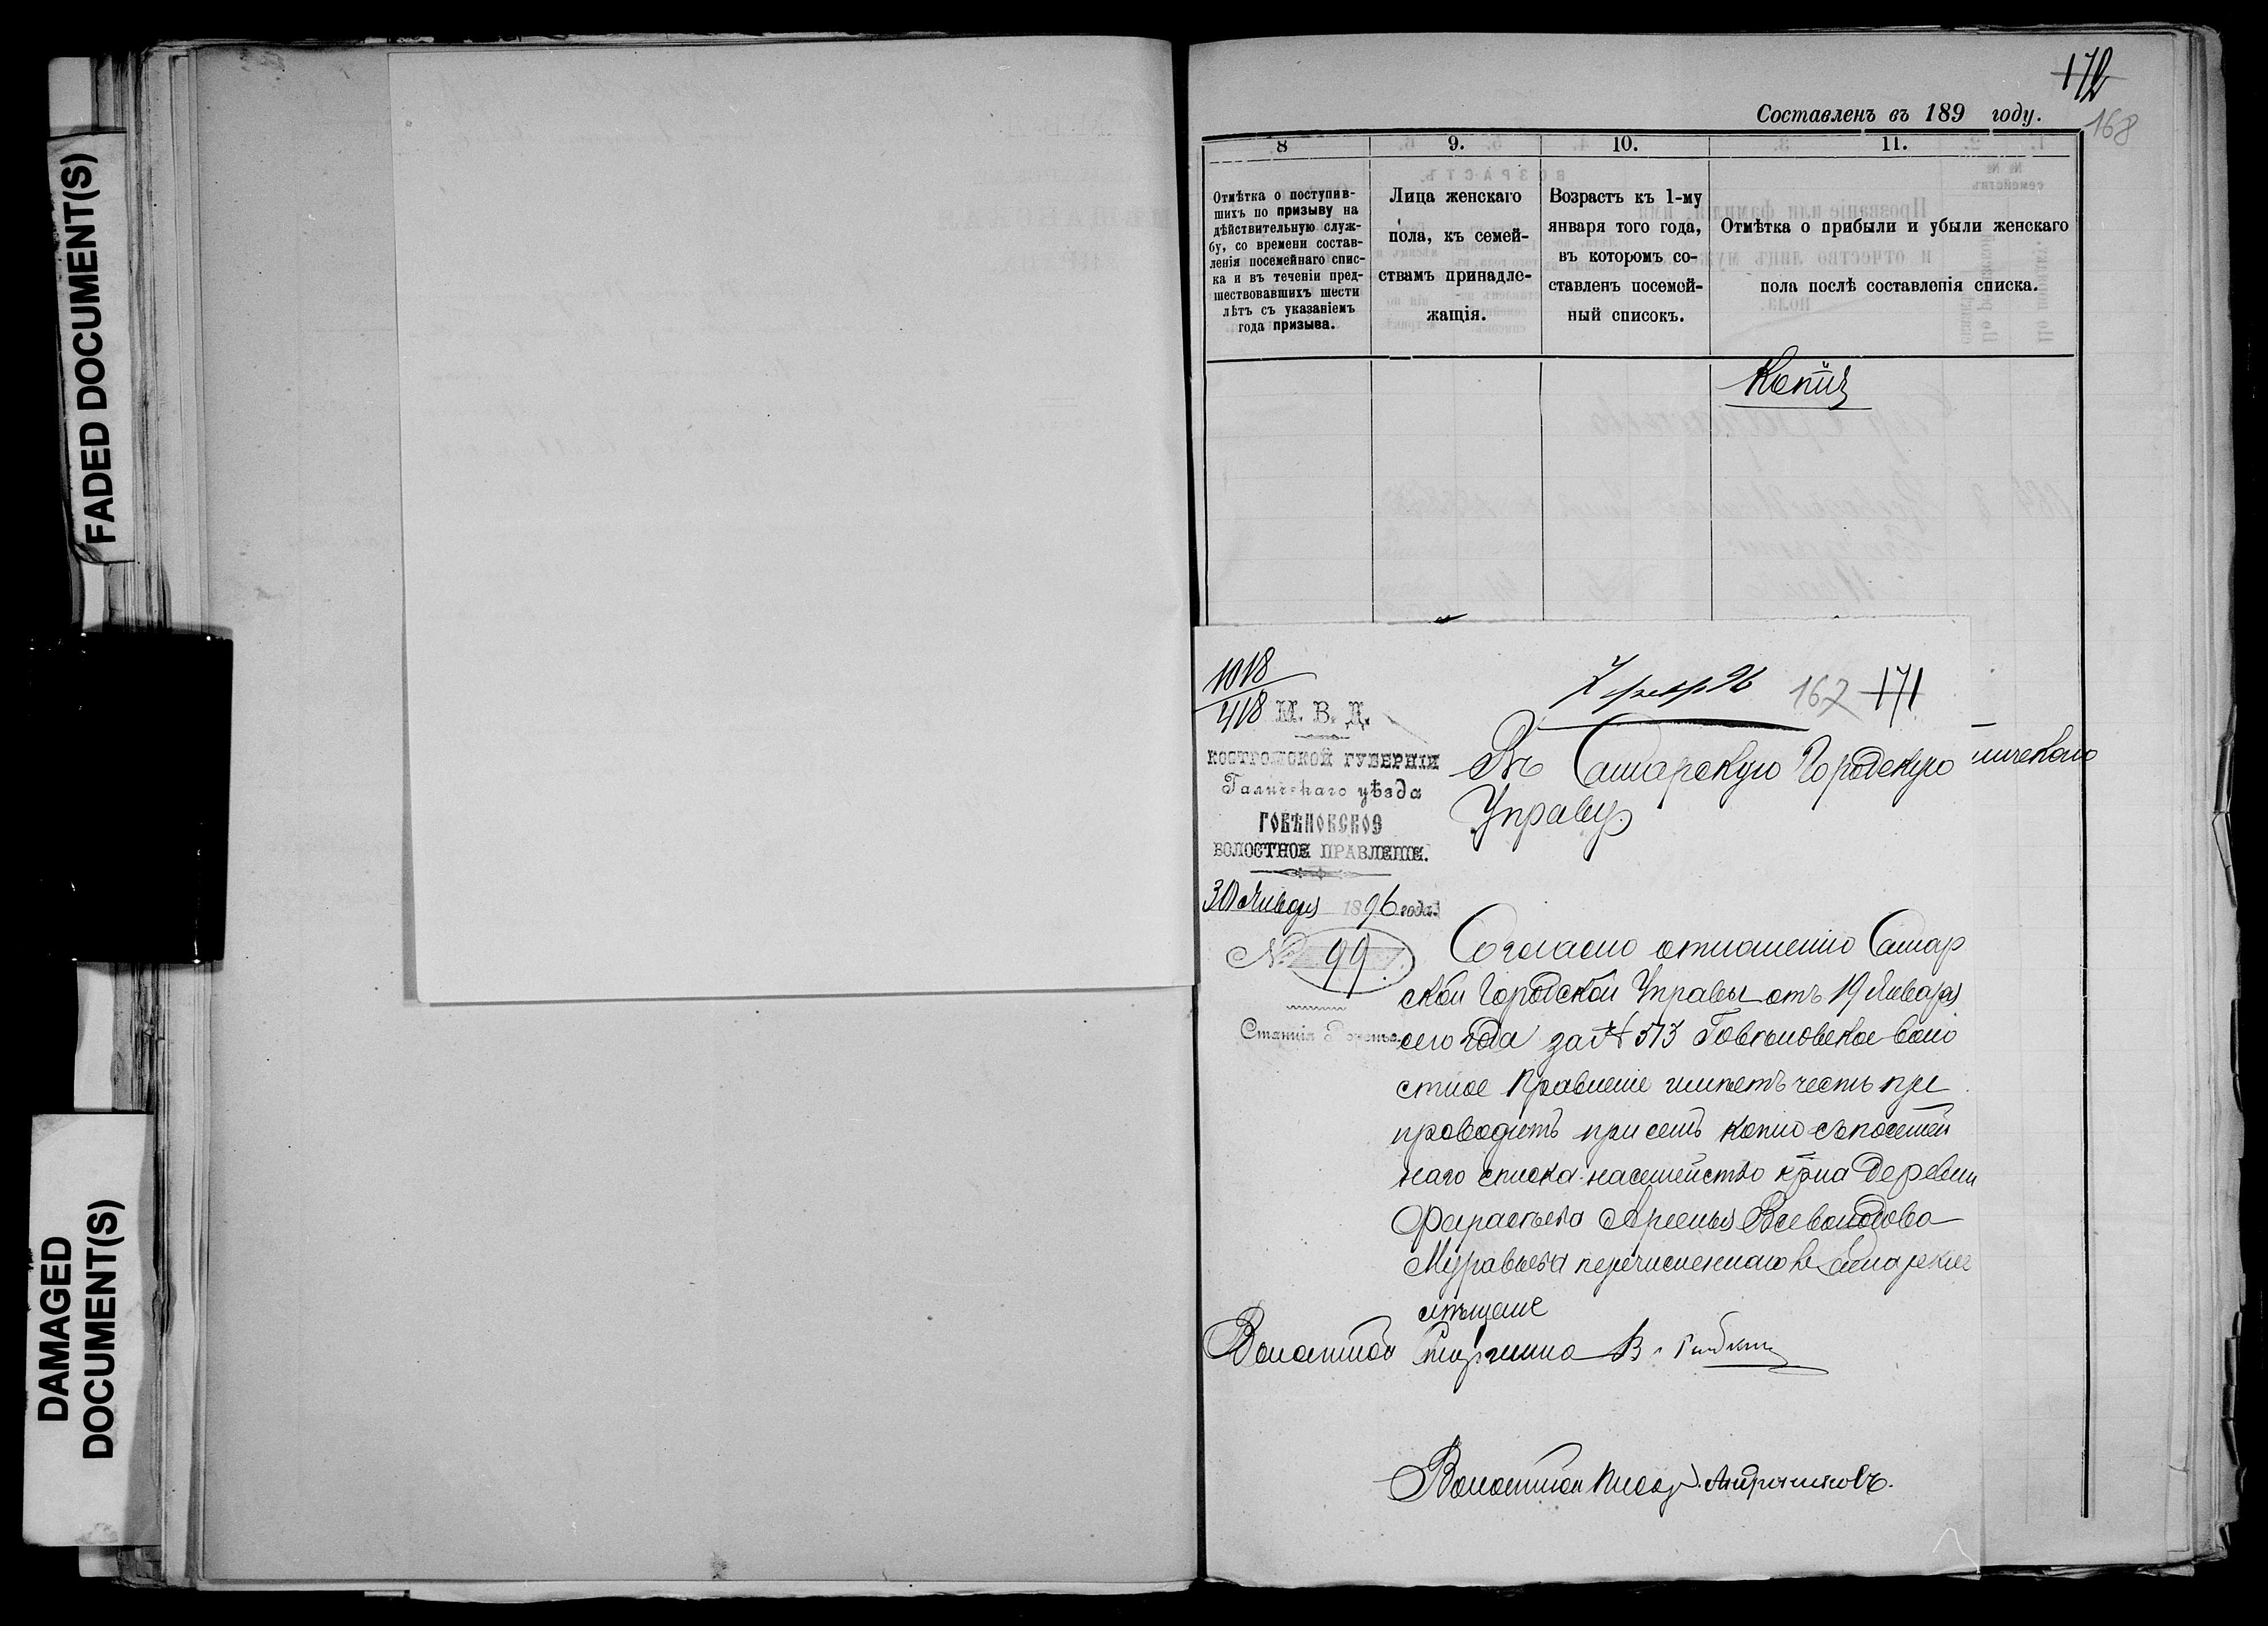 FADED DOCUMENT(S)
DAMAGED
DOCUMENT(S)
172
168
Составленъ въ 189 году.
8 9. 10. 11.
Отмѣтка о поступив-
шихъ по призыву на
дѣйствительную служ-
бу, со времени состав-
ленія посемейнаго спис-
ка и въ теченіи пред-
шествовавшихъ шести
лѣтъ съ указаніемъ
года призыва.
Лица женскаго
пола, къ семей-
ствамъ принадле-
жащія.
Возрастъ къ 1-му
января того года,
въ которомъ со-
ставленъ посемей-
ный списокъ.
Отмѣтка о прибыли и убыли женскаго
пола послѣ составленія списка.
Копія
1018
418
7 февр 96
167 171
М. В. Д.
КОСТРОМСКОЙ ГУБЕРНІИ
Галичскаго уѣзда
ГОВѢНОВСКОЕ
ВОЛОСТНОЕ ПРАВЛЕНІЕ.
30 Января 1896 года.
№ 99
Станція
Въ Самарскую Городскую
Управу.
Согласно отношенію Самар
ской Городской Управы отъ 19 Января
сего года за № 573 Говѣновское воло
стное Правленіе имѣетъ честь пре
проводить при семъ копію съ посемей
наго списка на семейство кр-на деревни
Арсенья Всеволодова
Муравьева перечисленнаго въ Самарские
мѣщане
Волостной Старшина В.
Волостной Писарь Андрониковъ.